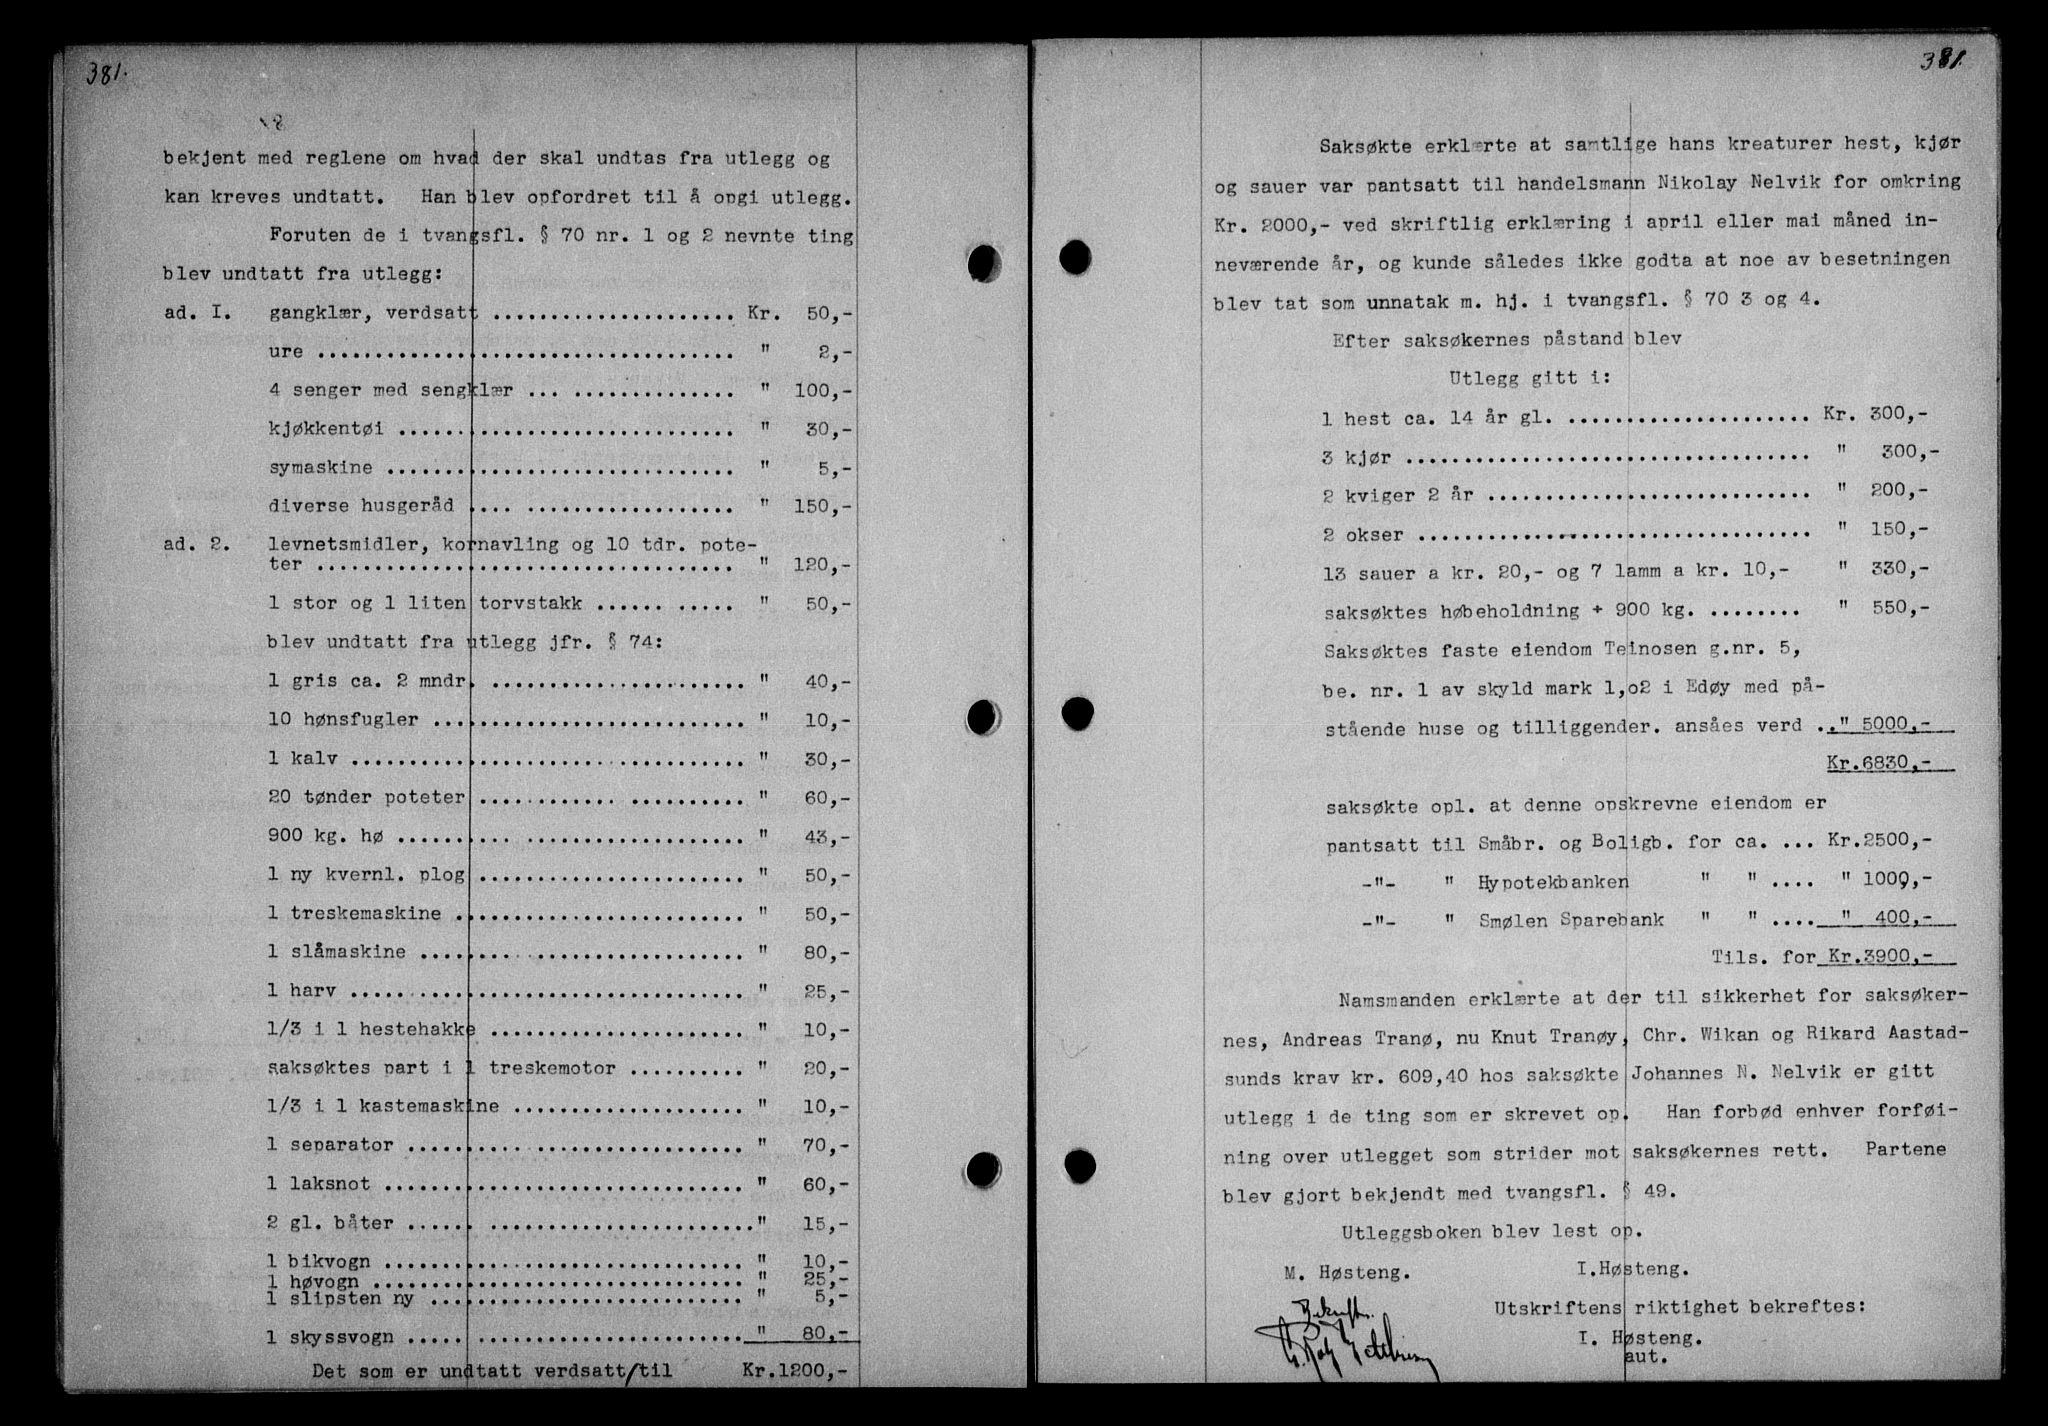 381.
bekjent med reglene om hvad der skal undtas fra utlegg og
kan kreves undtatt. Han blev opfordret til å opgi utlegg.
Foruten de i tvangsfl. § 70 nr. 1 og 2 nevnte ting
blev undtatt fra utlegg:
ad. I. gangklær, verdsatt ..................... Kr. 50,-
ure .................................... " 2,-
4 senger med sengklær ... .............. " 100,-
kjøkkentøi ............................. " 30,-
symaskine .............................. " 5,-
diverse husgeråd .... .................. " 150,-
ad. 2. levnetsmidler, kornavling og 10 tdr. pote-
ter .................................... " 120,-
1 stor og 1 liten torvstakk ...... ..... " 50,-
blev undtatt fra utlegg jfr. § 74:
1 gris ca. 2 mndr. ...................... " 40,-
10 hønsfugler ........................... " 10,-
1 kalv .................................. " 30,-
20 tønder poteter ............ .......... " 60,-
900 kg. hø .......... ................... " 43,-
1 ny kvernl. plog ....................... " 50,-
1 treskemaskine ......................... " 50,-
1 slåmaskine ............................ " 80,-
1 harv .................................. " 25,-
1/3 i 1 hestehakke ...................... " 10,-
saksøktes part i 1 treskemotor .......... " 20,-
1/3 i 1 kastemaskine .................... " 10,-
1 separator ............................. " 70,-
1 laksnot ............................... " 60,-
2 gl. båter ...... ........................" 15,-
1 bikvogn ............................... " 10,-
1 høvogn ................................ " 25,-
1 slipsten ny ........................... " 5,-
1 skyssvogn ............................. " 80,-
Det som er undtatt verdsatt/til Kr.1200,-
381.
Saksøkte erklærte at samtlige hans kreaturer hest, kjør
og sauer var pantsatt til handelsmann Nikolay Nelvik for omkring
Kr. 2000,- ved skriftlig erklæring i april eller mai måned in-
neværende år, og kunde således ikke godta at noe av besetningen
blev tat som unnatak m. hj. i tvangsfl. § 70 3 og 4.
Efter saksøkernes påstand blev
Utlegg gitt i:
1 hest ca. 14 år gl. ..................... Kr. 300,-
3 kjør ................................... " 300,-
2 kviger 2 år ............................ " 200,-
2 okser .................................. " 150,-
13 sauer a kr. 20,- og 7 lamm a kr. 10,- " 330,-
saksøktes høbeholdning + 900 kg. ........ " 550,-
Saksøktes faste eiendom Teinosen g.nr. 5,
be. nr. 1 av skyld mark 1,o2 i Edøy med på-
stående huse og tilliggender. ansåes verd .." 5000,-
Kr.6830,-
saksøkte opl. at denne opskrevne eiendom er
pantsatt til Småbr. og Boligb. for ca. ... Kr.2500,-
-"- " Hypotekbanken " " .... " 1000,-
-"- " Smølen Sparebank " " .... " 400,-
Tils. for Kr.3900,-
Namsmanden erklærte at der til sikkerhet for saksøker-
nes, Andreas Tranø, nu Knut Tranøy, Chr. Wikan og Rikard Aastad-
sunds krav kr. 609,40 hos saksøkte Johannes N. Nelvik er gitt
utlegg i de ting som er skrevet op. Han forbød enhver forføi-
ning over utlegget som strider mot saksøkernes rett. Partene
blev gjort bekjendt med tvangsfl. § 49.
Utleggsboken blev lest op.
M. Høsteng. I.Høsteng.
Utskriftens riktighet bekreftes:
I. Høsteng.
aut.